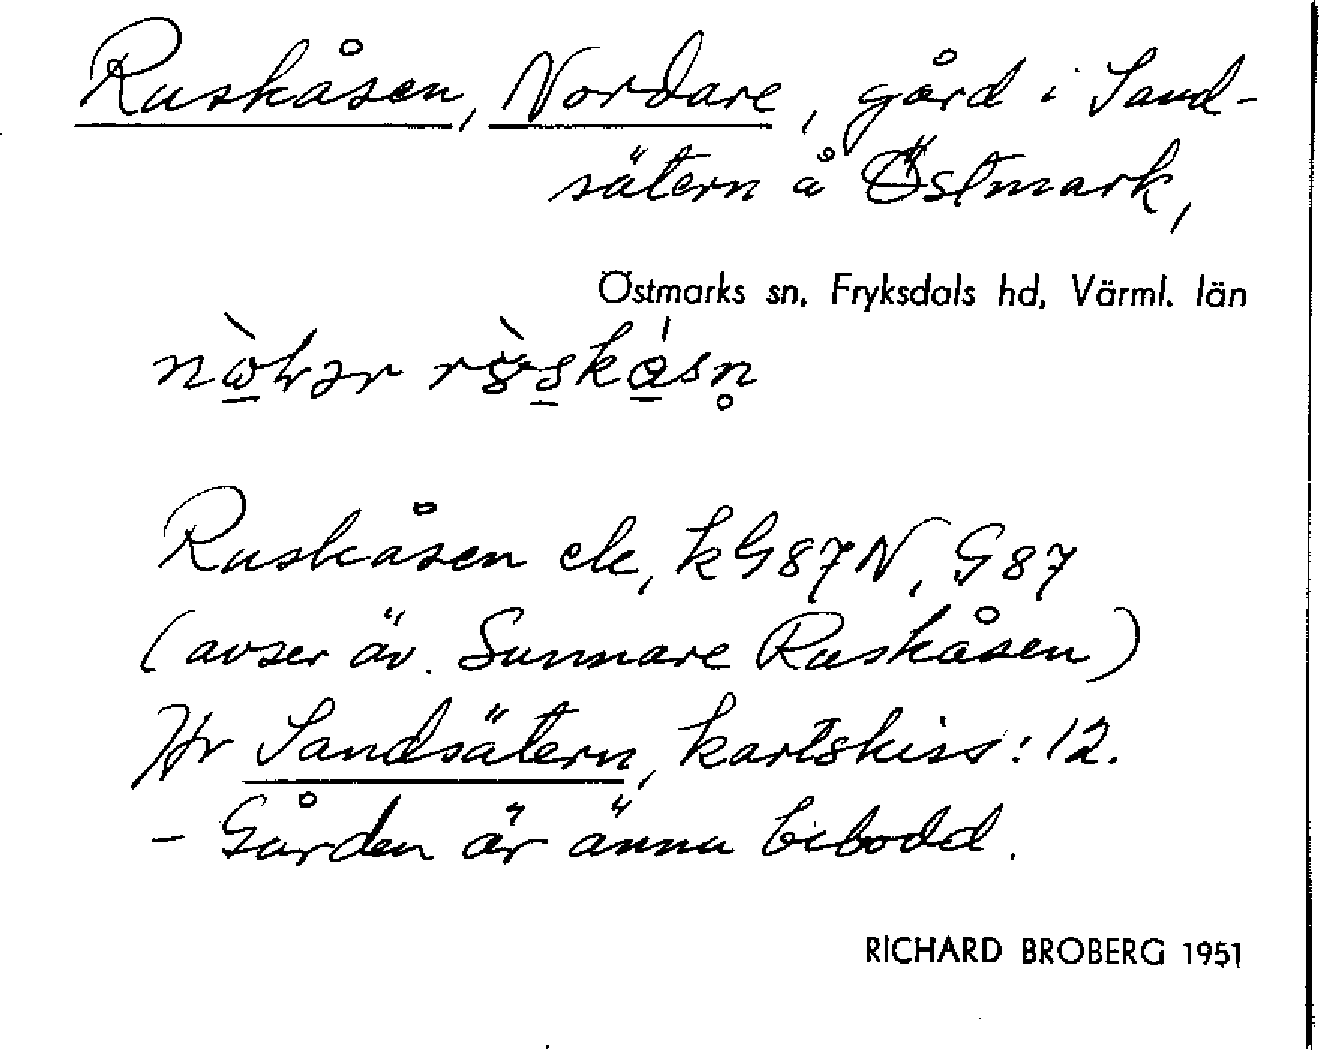 Ruskåsen, Nordare, gård i Sand-
sätern å Östmark,
Östmarks sn, Fryksdals hd, Värml. län
Ruskåsen ek, k G87N, G87
(avser äv. Sunnare Ruskåsen)
Jfr Sandsätern, kartskiss: 12.
- Gården är ännu bebodd.
RICHARD BROBERG 1951